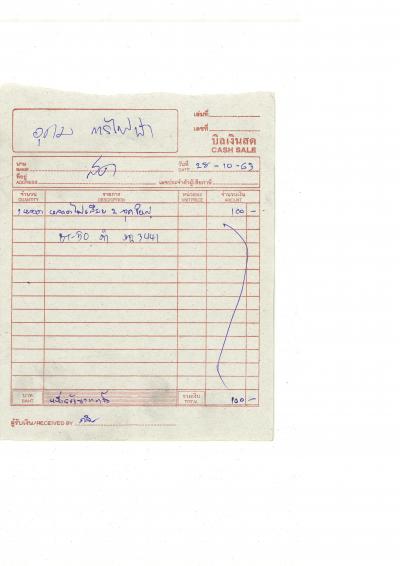 อุดม การไฟฟ้า
เล่มที่
เลขที่
บิลเงินสด
CASH SALE
นาม
NAME
สด
วันที่
DATE
28-10-63
ที่อยู่
ADDRESS
เลขประจำตัวผู้เสียภาษี
จำนวน
QUANTITY
รายการ
DESCRIPTION
หน่วยละ
UNIT PRICE
จำนวนเงิน
AMOUNT
2 จุดใหญ่
100 -
3441
บาท
BAHT
หนึ่งร้อยบาทถ้วน
รวมเงิน
TOTAL
100 -
ผู้รับเงิน/RECEIVED BY